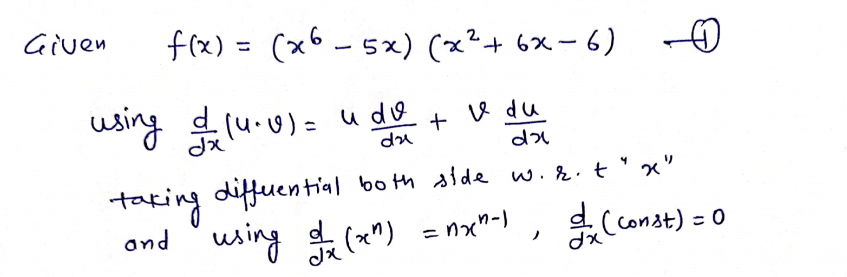 Given f(x) = (x⁶ - 5x) (x² + 6x - 6) —①
using d/dx (u·v) = u dv/dx + v du/dx
taking diffuential both side w.r.t "x"
and using d/dx (xⁿ) = nxⁿ⁻¹ , d/dx (const) = 0